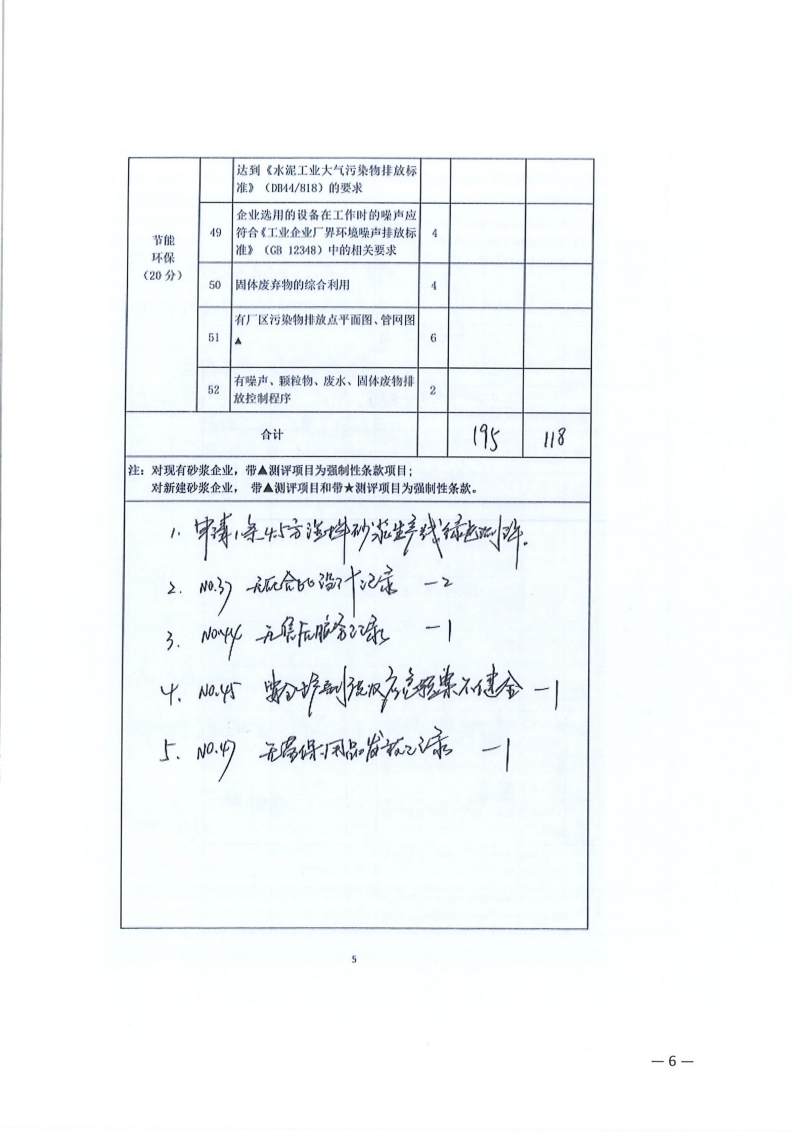 达到《水泥工业大气污染物排放标
准》（DB44/818）的要求
节能
环保
（20 分）
49
企业选用的设备在工作时的噪声应
符合《工业企业厂界环境噪声排放标
准》（GB 12348）中的相关要求
4
50
固体废弃物的综合利用
4
51
有厂区污染物排放点平面图、管网图
▲
6
52
有噪声、颗粒物、废水、固体废物排
放控制程序
2
合计
195
118
注：对现有砂浆企业，带▲测评项目为强制性条款项目；
对新建砂浆企业， 带▲测评项目和带★测评项目为强制性条款。
1. 申请1条4.5方湿拌砂浆生产线绿色测评。
2. NO.37 无配合比设计记录 －2
3. NO.44 无售后服务记录 －1
4. NO.45 安全培训 不健全 －1
5. NO.47 无劳保用品发放记录 －1
5
— 6 —